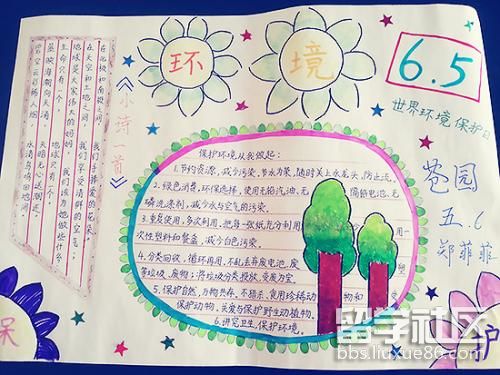 环 境
6.5
世界环境保护日
芭园
五.6
郑菲菲
小诗一首
在北极和南极之间，
在天空和土地之间，
地球是大家伟大的妈妈，
生命只有一个，
我们手捧爱的花朵
我们享受清鲜的空气；
地球只有一个，
我们该为她做些什么？
保护环境从我做起：
1.节约资源，减少污染，节水为荣，随时关上水龙头，防止流
2.绿色消费，环保选择，使用无铅汽油、无
镉铅电池、无
磷洗涤剂，减少水与空气的污染。
3.重复使用，多次利用，把每一张纸充分利用
用一
次性塑料和餐盒，减少白色污染。
4.分类回收，循环再用，不乱丢弃废电池、废
等垃圾、废物；将垃圾分类投放，变废为宝。
5.保护自然，万物共存，不猎杀、食用珍稀动
物和
保护动物，关爱与保护野生动植物。
6.讲究卫生，保护环境。
保
护
留学社区
bbs.liuxue86.com